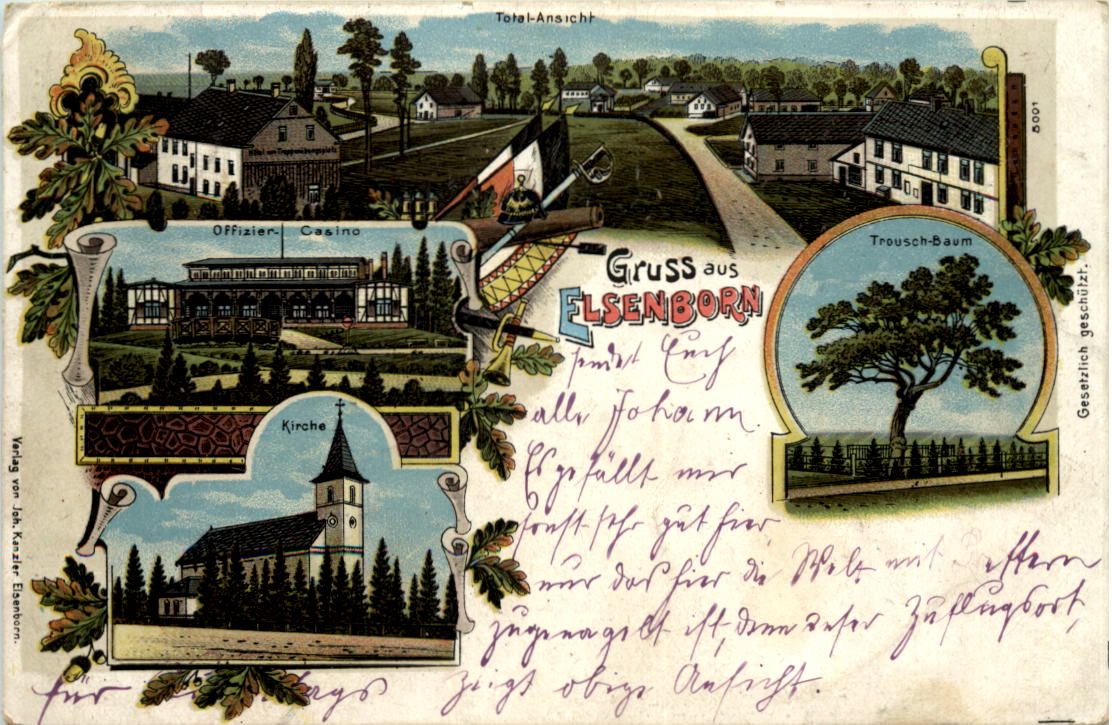 Total-Ansicht
5001
Offizier-Casino
Trousch-Baum
Gruss aus
ELSENBORN
Kirche
Gesetzlich geschützt.
Verlag von Joh. Kanzler Elsenborn.
sendet Euch
alle Johann.
Es gefällt mir
sonst sehr gut hier
nur das hier die Welt mit Brettern
zugenagelt ist, denn unser Zuflugsort,
für zeigt obige Ansicht.